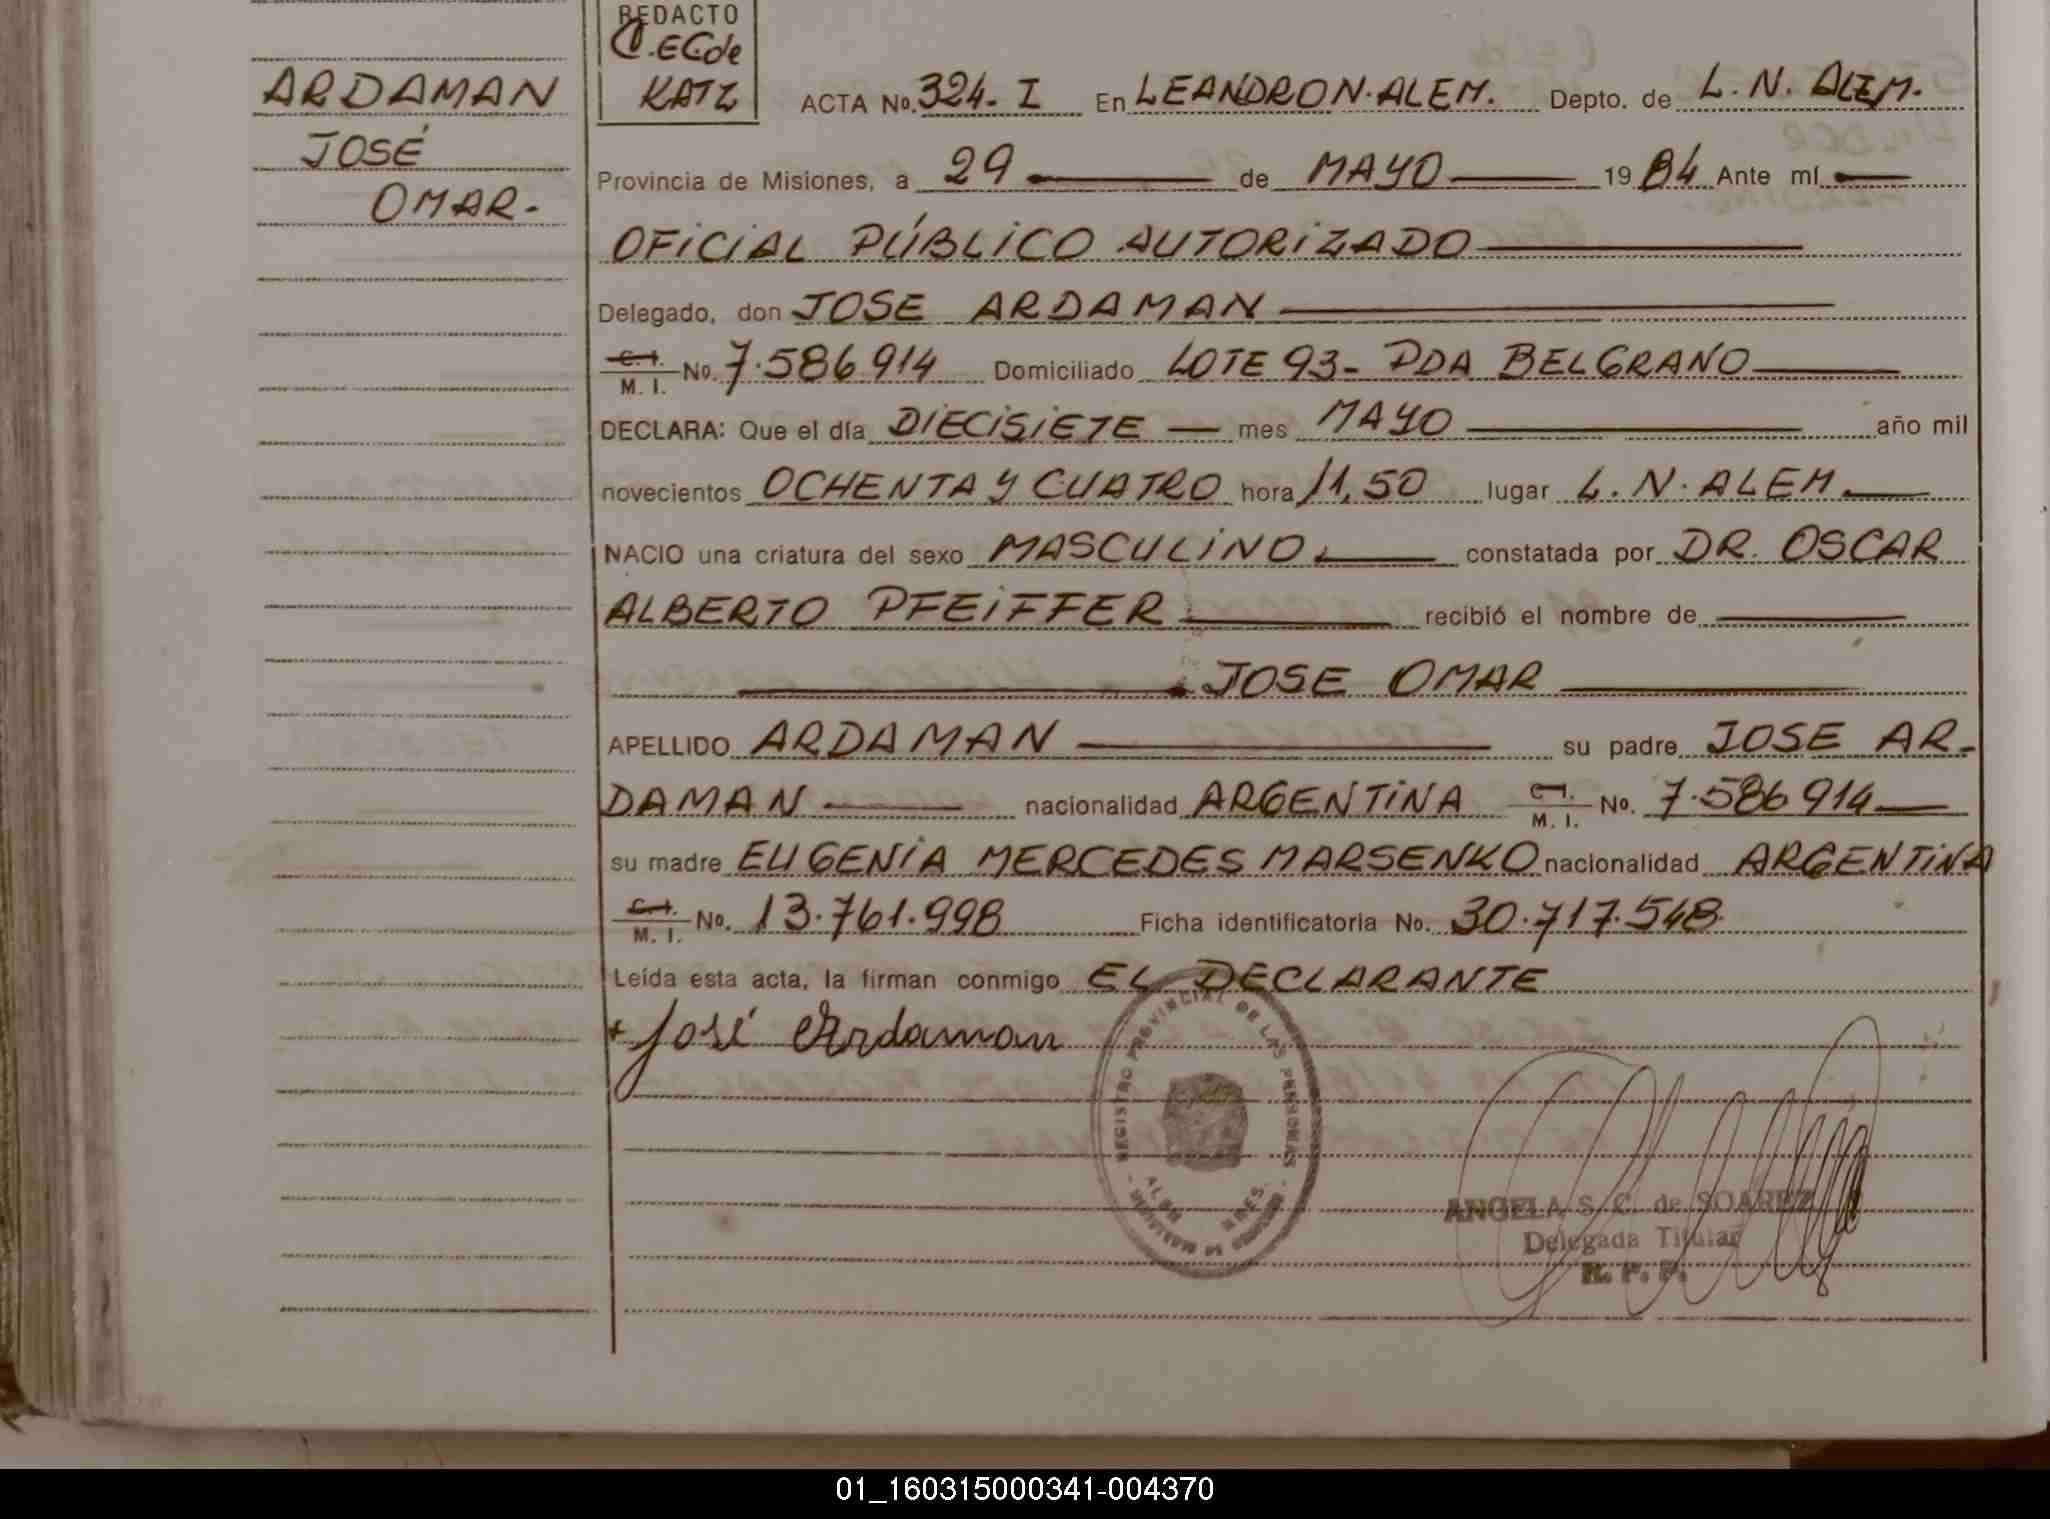 ARDAMAN
JOSÉ
OMAR.-
REDACTO
C.EC.de
KATZ
ACTA No. 324. I En LEANDRO N. ALEM. Depto. de L. N. ALEM.
Provincia de Misiones, a 29 de MAYO 1984 Ante mí
OFICIAL PÚBLICO AUTORIZADO
Delegado, don JOSE ARDAMAN
C.I. / M. I. No. 7.586 914 Domiciliado LOTE 93- PDA BELGRANO
DECLARA: Que el día DIECISIETE mes MAYO año mil
novecientos OCHENTA Y CUATRO hora 11,50 lugar L. N. ALEM.
NACIO una criatura del sexo MASCULINO. constatada por DR. OSCAR
ALBERTO PFEIFFER recibió el nombre de
JOSE OMAR
APELLIDO ARDAMAN su padre JOSE AR-
DAMAN nacionalidad ARGENTINA C.I. / M. I. No. 7.586 914
su madre EUGENIA MERCEDES MARSENKO nacionalidad ARGENTINA
C.I. / M. I. No. 13.761.998 Ficha identificatoria No. 30.717.548
Leída esta acta, la firman conmigo EL DECLARANTE
+ José Ardaman
REGISTRO PROVINCIAL DE LAS PERSONAS
ALEM MNES.
ANGELA S. C. de SOAREZ
Delegada Titular
R. P. P.
01_160315000341-004370